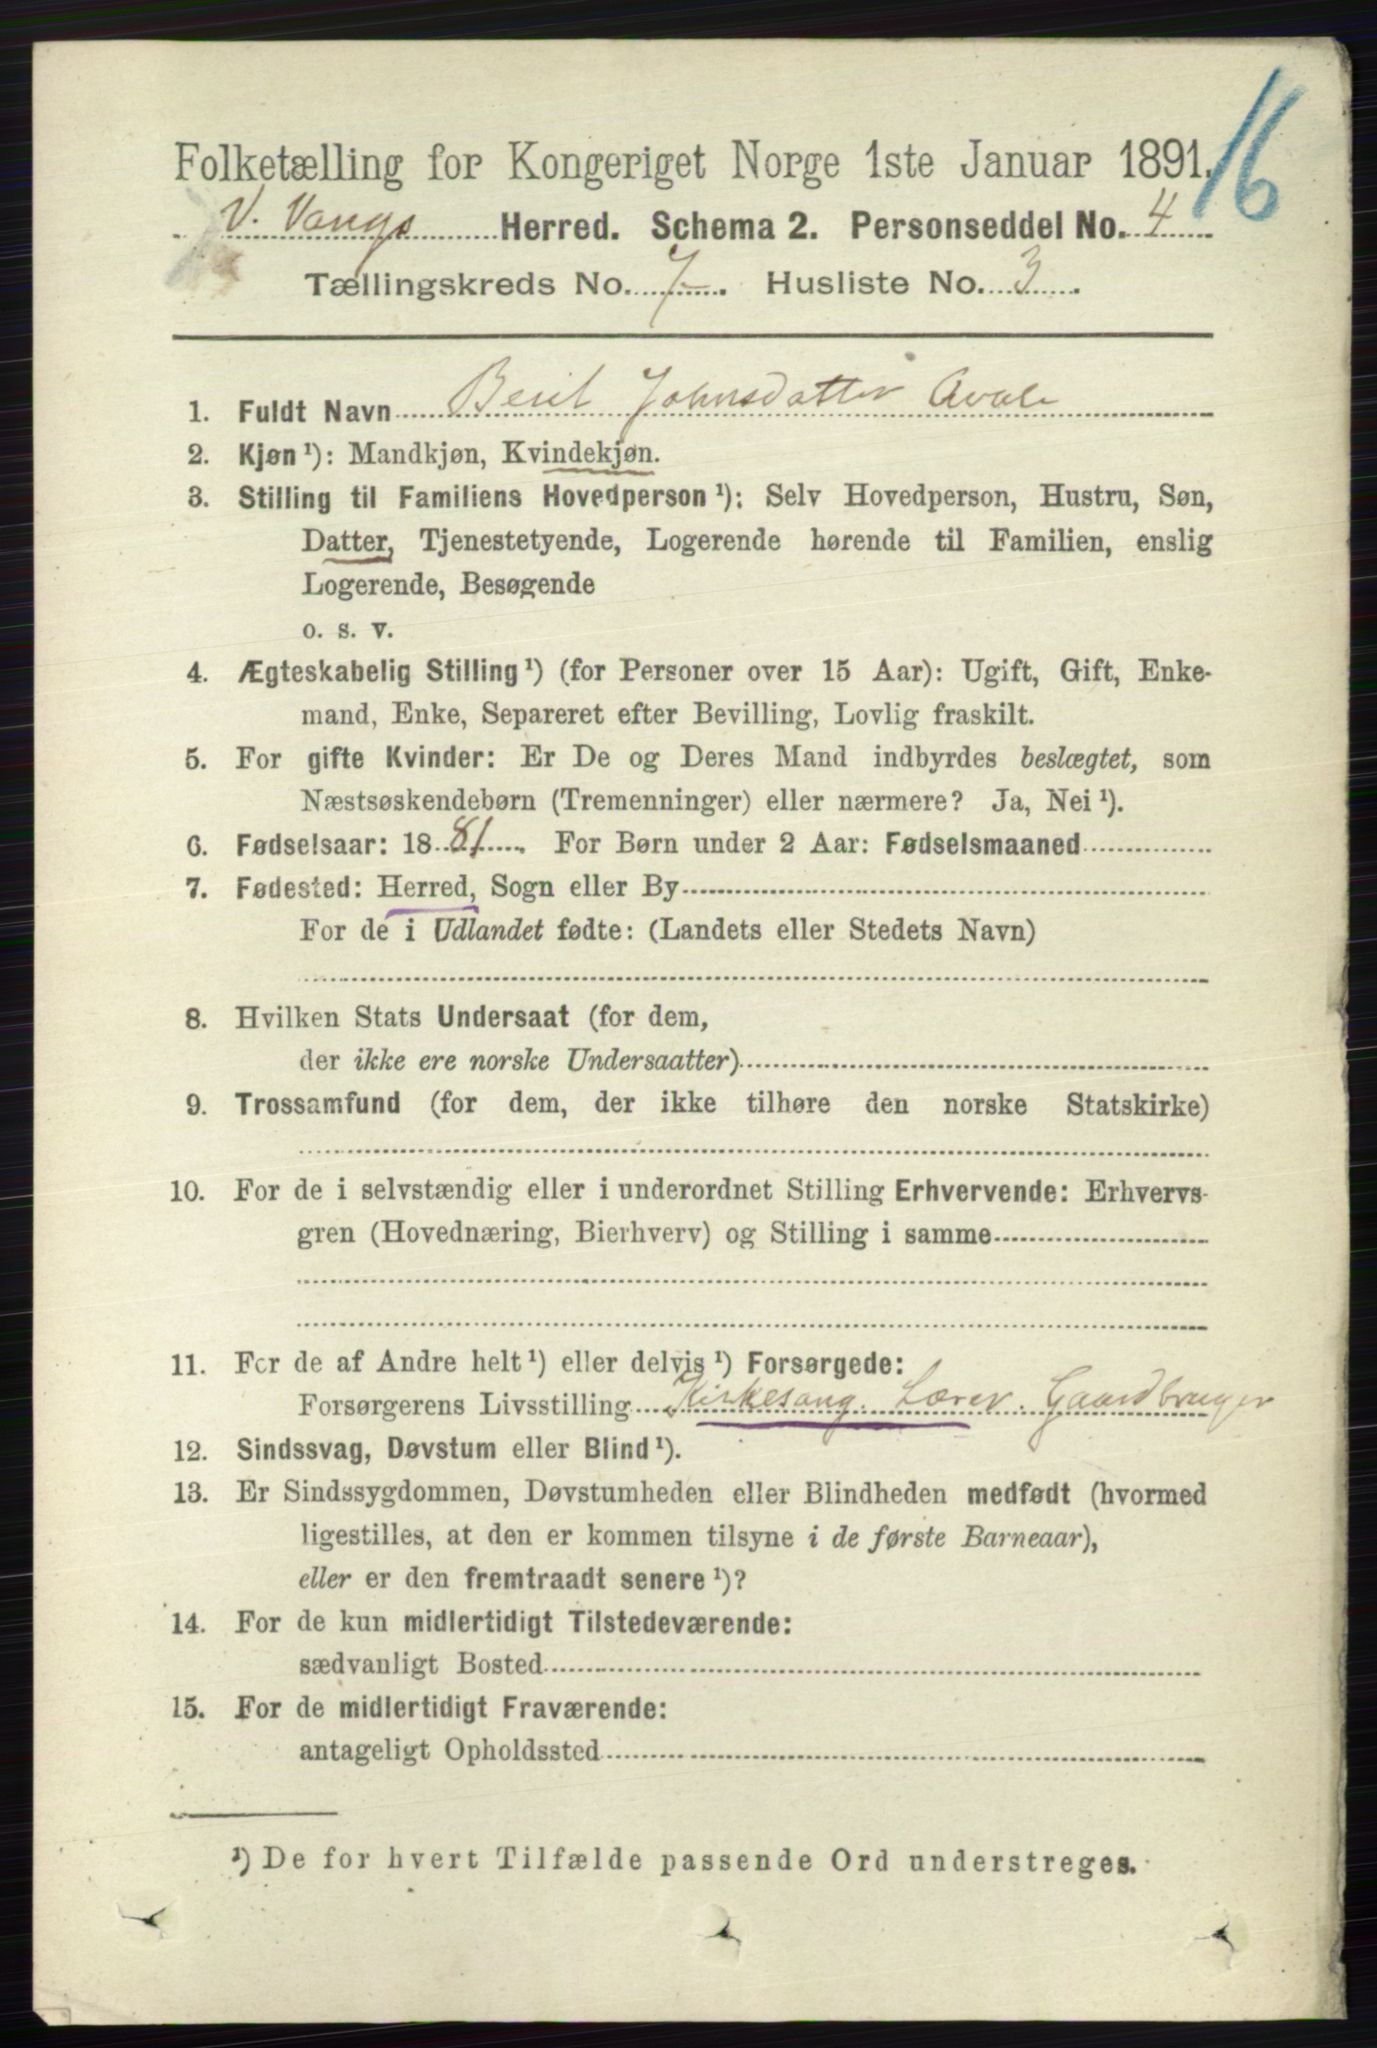 16
Folketælling for Kongeriget Norge 1ste Januar 1891.
V. Vangs Herred. Schema 2. Personseddel No. 4
Tællingskreds No. 7. Husliste No. 3.
1. Fuldt Navn Berit Johnsdatter
2. Kjøn ¹): Mandkjøn, Kvindekjøn.
3. Stilling til Familiens Hovedperson ¹): Selv Hovedperson, Hustru, Søn,
Datter, Tjenestetyende, Logerende hørende til Familien, enslig
Logerende, Besøgende
o. s. v.
4. Ægteskabelig Stilling ¹) (for Personer over 15 Aar): Ugift, Gift, Enke-
mand, Enke, Separeret efter Bevilling, Lovlig fraskilt.
5. For gifte Kvinder: Er De og Deres Mand indbyrdes beslægtet, som
Næstsøskendebørn (Tremenninger) eller nærmere? Ja, Nei ¹).
6. Fødselsaar: 1881. For Børn under 2 Aar: Fødselsmaaned
7. Fødested: Herred, Sogn eller By
For de i Udlandet fødte: (Landets eller Stedets Navn)
8. Hvilken Stats Undersaat (for dem,
der ikke ere norske Undersaatter)
9. Trossamfund (for dem, der ikke tilhøre den norske Statskirke)
10. For de i selvstændig eller i underordnet Stilling Erhvervende: Erhvervs-
gren (Hovednæring, Bierhverv) og Stilling i samme
11. For de af Andre helt ¹) eller delvis ¹) Forsørgede:
Forsørgerens Livsstilling Kirkesang. Lærer. Gaardbruger
12. Sindssvag, Døvstum eller Blind ¹).
13. Er Sindssygdommen, Døvstumheden eller Blindheden medfødt (hvormed
ligestilles, at den er kommen tilsyne i de første Barneaar),
eller er den fremtraadt senere ¹)?
14. For de kun midlertidigt Tilstedeværende:
sædvanligt Bosted
15. For de midlertidigt Fraværende:
antageligt Opholdssted
¹) De for hvert Tilfælde passende Ord understreges.